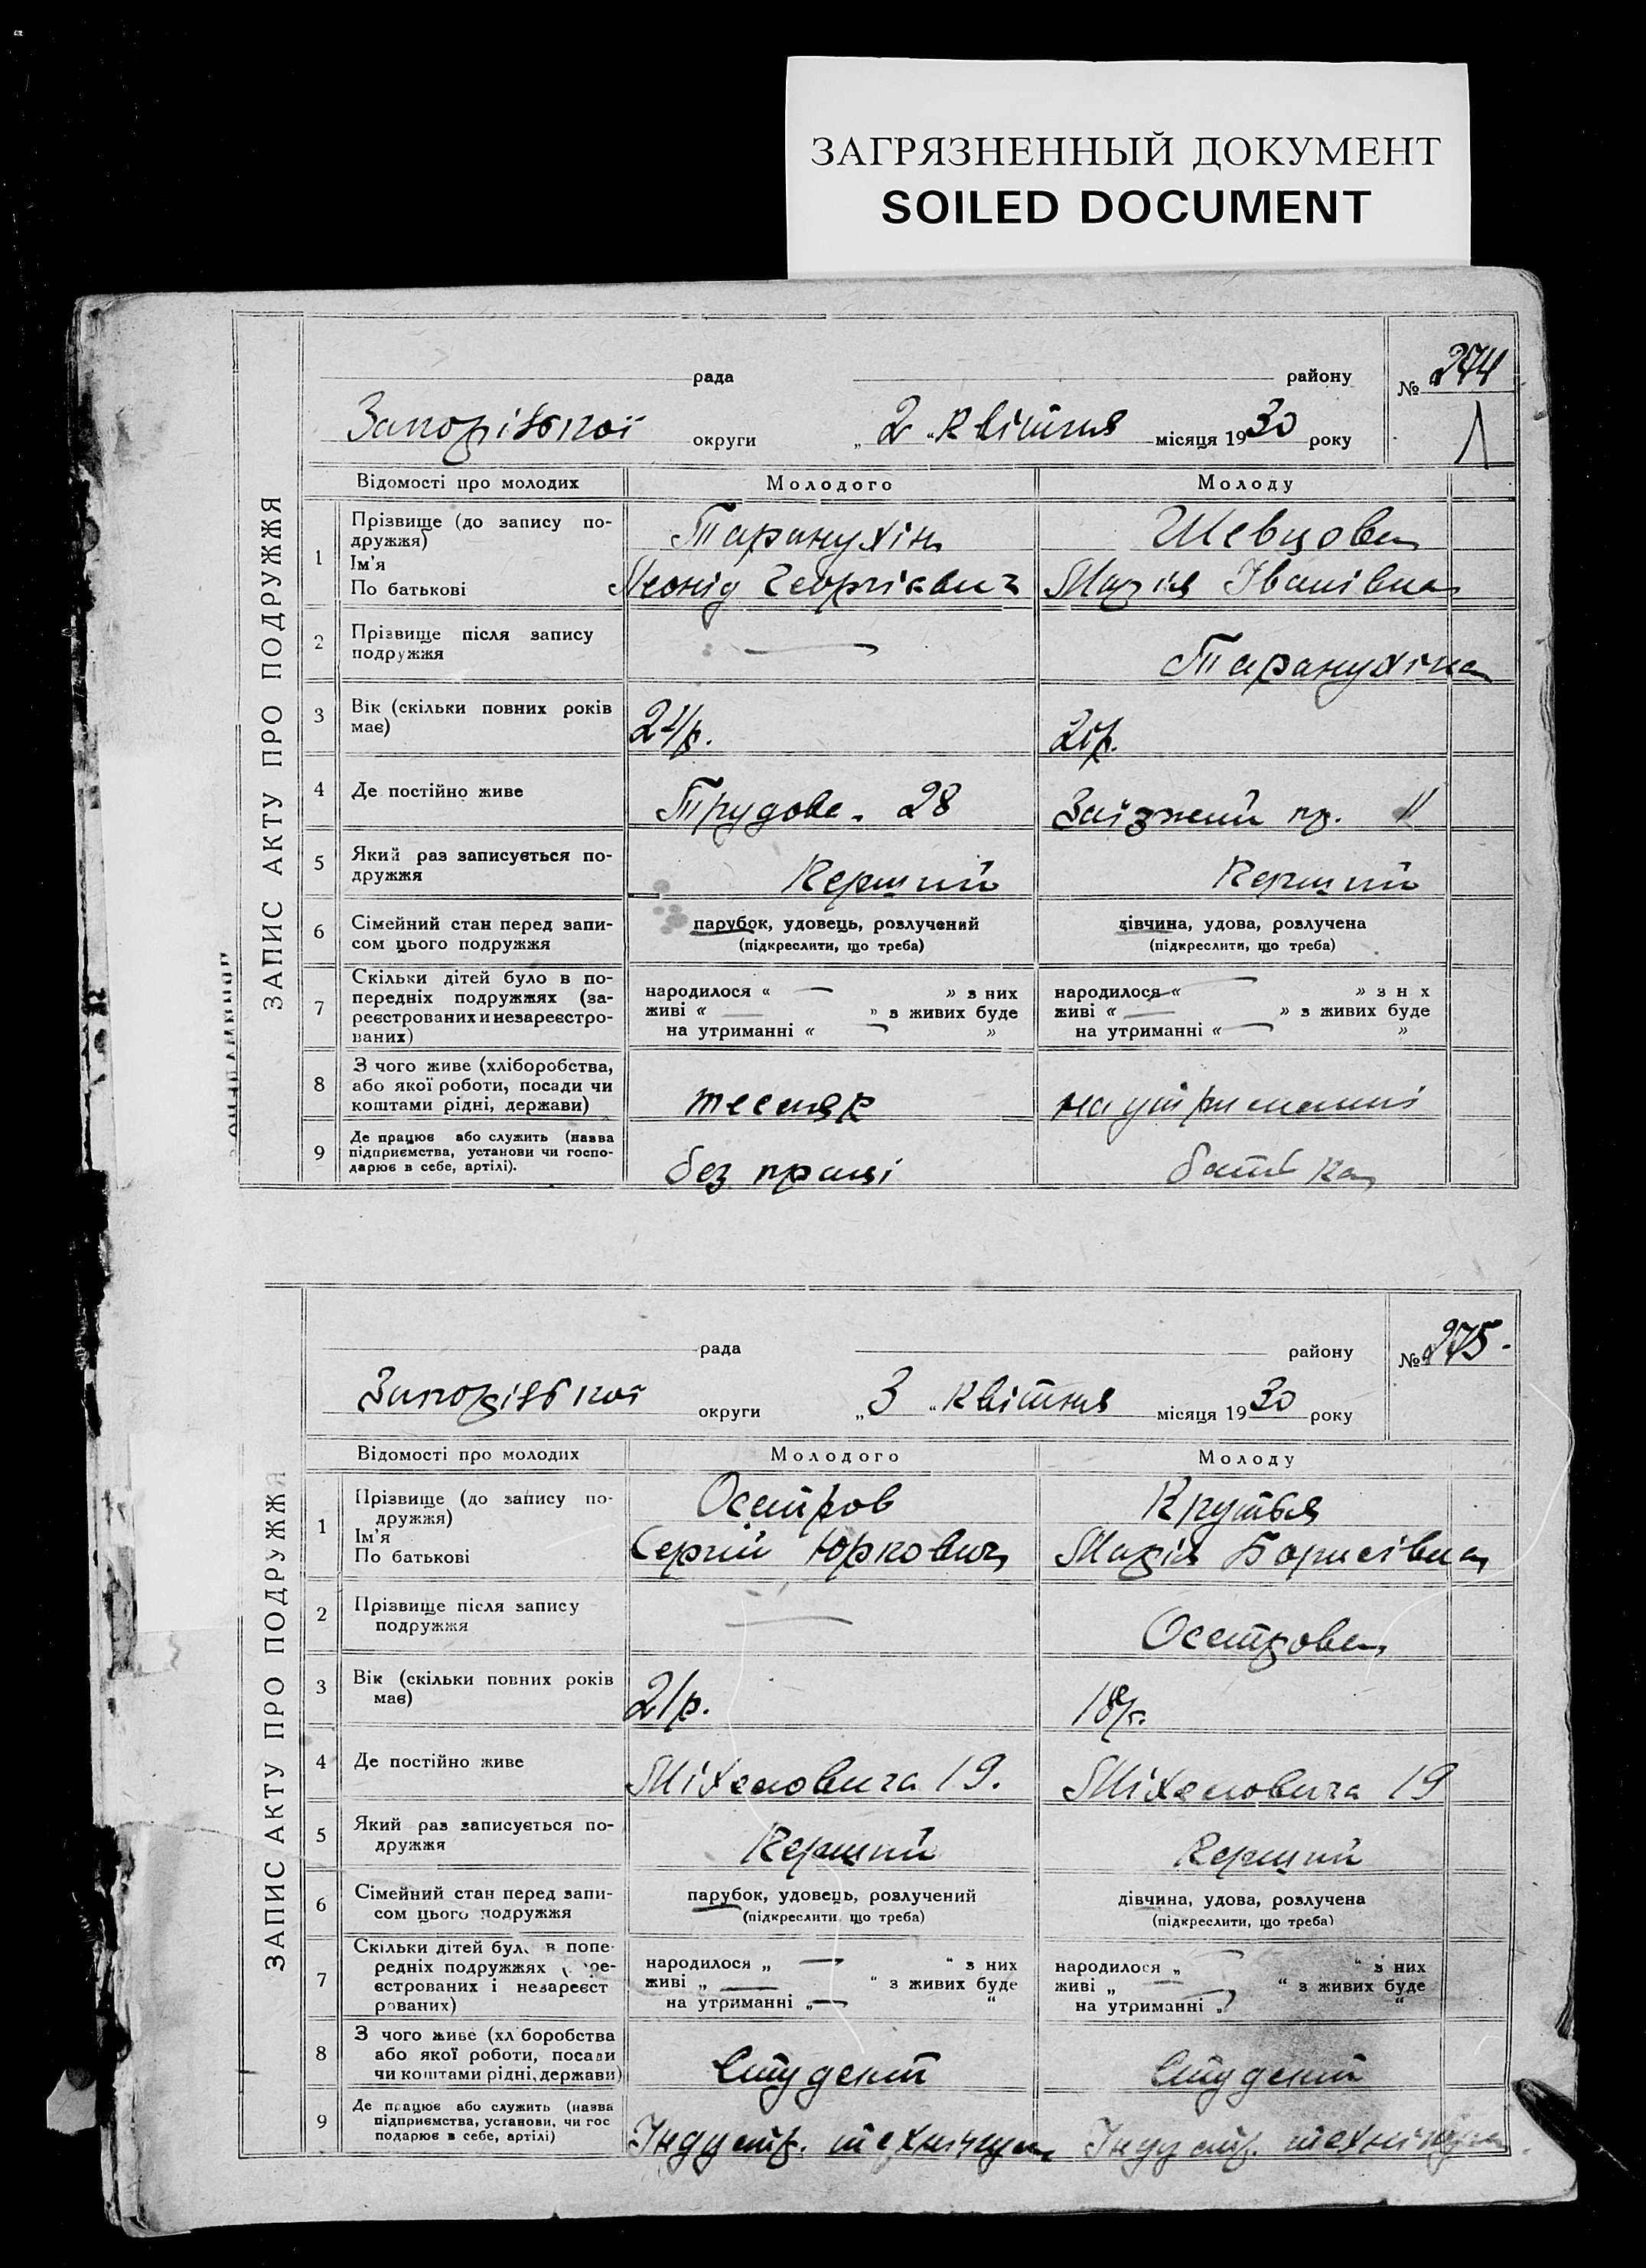 ЗАГРЯЗНЕННЫЙ ДОКУМЕНТ
SOILED DOCUMENT
ЗАПИС АКТУ ПРО ПОДРУЖЖЯ
рада района району № 274
Запорізької округи „2“ квітня місяця 1930 року
Відомості про молодих Молодого Молоду
1 Прізвище (до запису по-
дружжя) Таранухін Шевцова
Ім'я
По батькові Леонід Георгієвич Марія Іванівна
2 Прізвище після запису
подружжя — Таранухіна
3 Вік (скільки повних років
має) р. р.
4 Де постійно живе Трудова. 28 Заїзжий пр. 11
5 Який раз записується по-
дружжя Перший Перший
6 Сімейний стан перед запи-
сом цього подружжя
парубок, удовець, розлучений дівчина, удова, розлучена
(підкреслити, що треба) (підкреслити, що треба)
7 Скільки дітей було в по-
передніх подружжях (за-
реєстрованих и незареєстро-
ваних)
народилося « — » з них народилося « — » з н х
живі « — » з живих буде живі « — » з живих буде
на утриманні « — » на утриманні « — »
8 З чого живе (хліборобства,
або якої роботи, посади чи
коштами рідні, держави) тесляр на утриманні
9 Де працює або служить (назва
підприємства, установи чи госпо-
дарює в себе, артілі). без праці батька
ЗАПИС АКТУ ПРО ПОДРУЖЖЯ
рада району № 275.
Запорізької округи „3“ квітня місяця 1930 року
Відомості про молодих Молодого Молоду
1 Прізвище (до запису по-
дружжя) Осетров Крутья
Ім'я
По батькові Сергій Юркович Марія Борисівна
2 Прізвище після запису
подружжя — Осетрова
3 Вік (скільки повних років
має) 21р. 18р.
4 Де постійно живе Міхеловича 19. Міхеловича 19
5 Який раз записується по-
дружжя Перший Перший
6 Сімейний стан перед запи-
сом цього подружжя
парубок, удовець, розлучений дівчина, удова, розлучена
(підкреслити, що треба) (підкреслити, що треба)
7 Скільки дітей було в попе-
редніх подружжях
єстрованих і незареєст
рованих)
народилося „ — “ з них народилося „ — “ з них
живі „ — “ з живих буде живі „ — “ з живих буде
на утриманні „ — “ на утриманні „ — “
8 З чого живе (хл боробства
або якої роботи, посади
чи коштами рідні, держави) Студент Студент
9 Де працює або служить (назва
підприємства, установи, чи гос
подарює в себе, артілі) Індустр. технічум Індустр. технічум